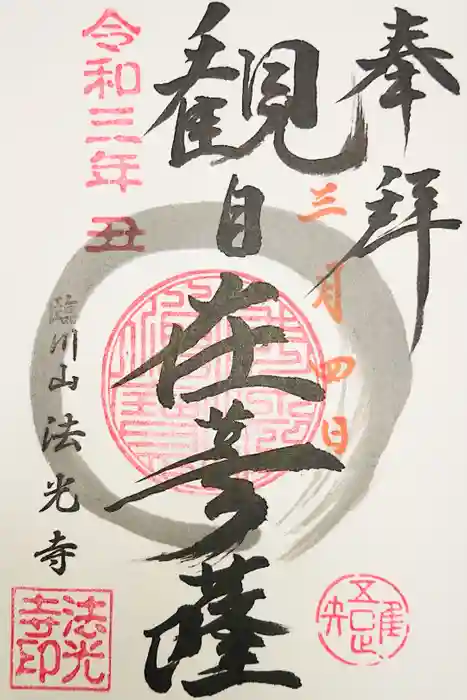 奉拝
三月四日
観自在菩薩
令和三年 丑
臨川山 法光寺
法光
寺印